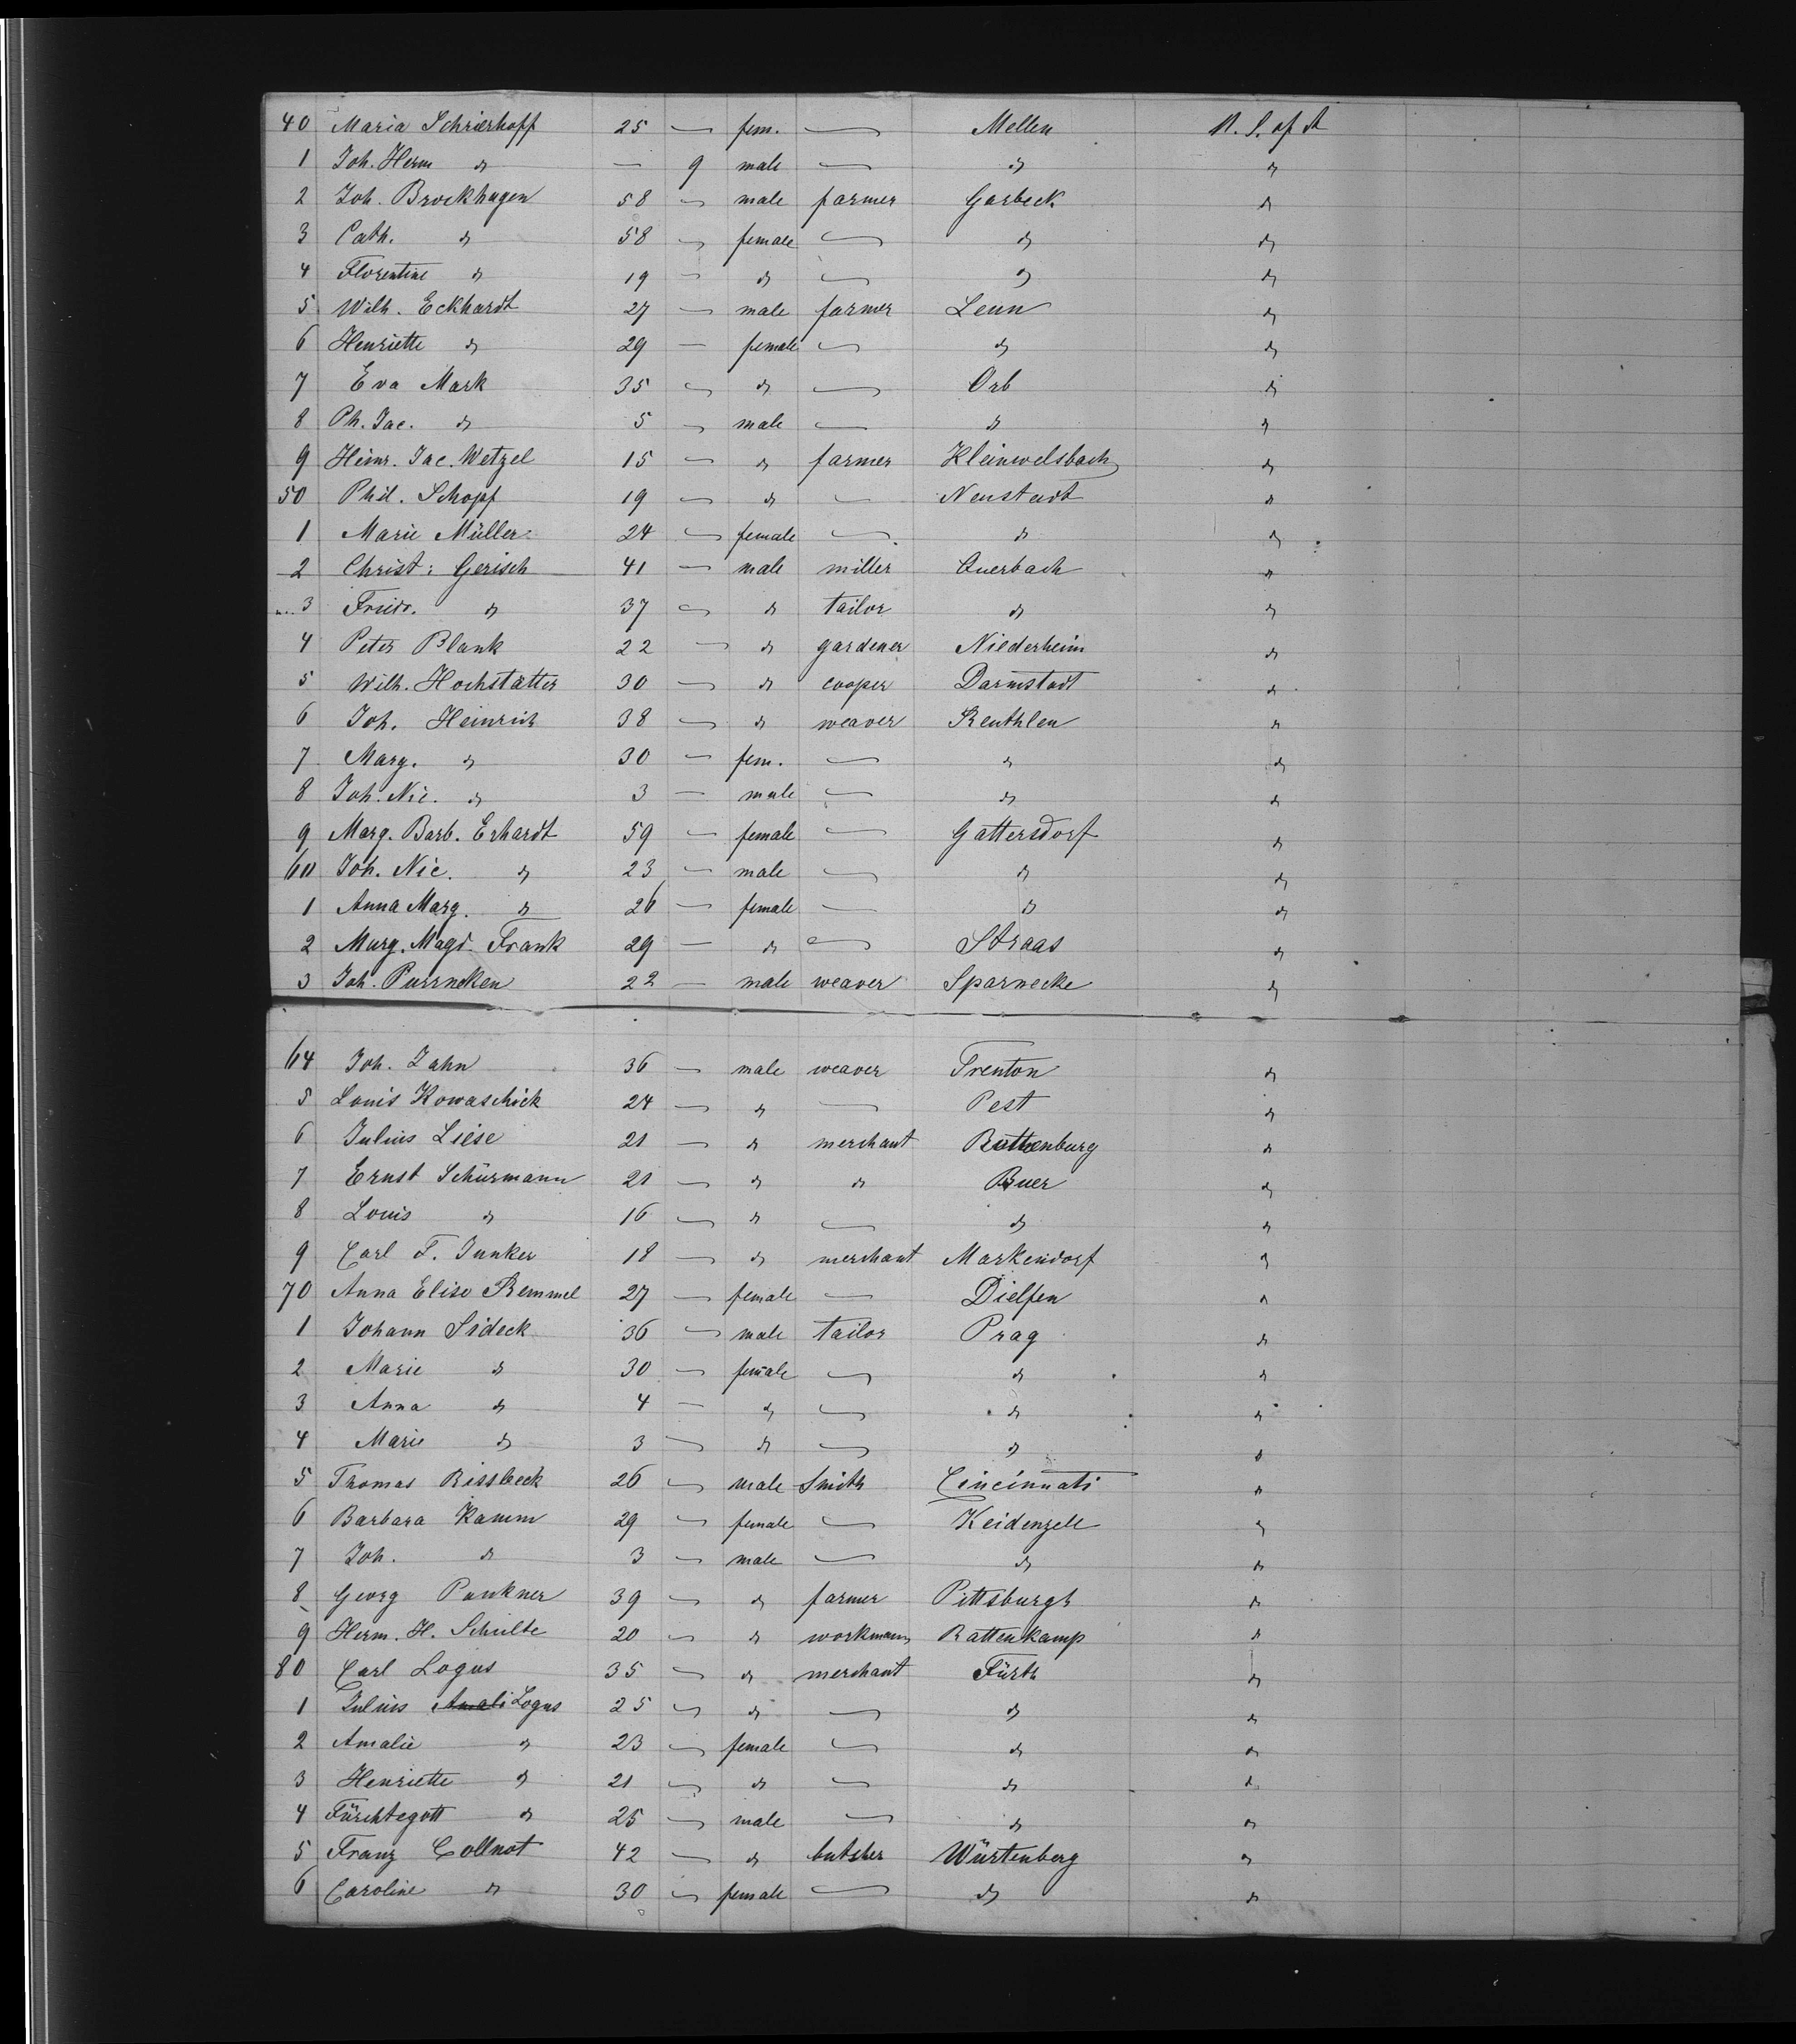 40 Maria Schrierhoff 25 — fem. — Mellen U. S. of A
1 Joh. Herm do — 9 male — do do
2 Joh. Brockhagen 58 — male farmer Garbeck do
3 Cath. do 58 — female — do do
4 Florentine do 19 — do — do do
5 Wilh. Eckhardt 27 — male farmer Lenn do
6 Henriette do 29 — female — do do
7 Eva Mark 35 — do — Orb do
8 Ph. Jac. do 5 — male — do do
9 Heinr. Jac. Wetzel 15 — do farmer Kleinwelsbach do
50 Phil. Schopf 19 — do — Neustadt do
1 Marie Müller 24 — female — do do
2 Christ: Gerisch 41 — male miller Auerbach do
3 Friedr. do 37 — do tailor do do
4 Peter Blank 22 — do gardener Niederheim do
5 Wilh. Hochstätter 30 — do cooper Darmstadt do
6 Joh. Heinrich 38 — do weaver Reuthlen do
7 Marg. do 30 — fem. — do do
8 Joh. Nic. do 3 — male — do do
9 Marg. Barb. Erhardt 59 — female — Gattersdorf do
60 Joh. Nic. do 23 — male — do do
1 Anna Marg. do 26 — female — do do
2 Marg. Magd. Frank 29 — do — Straas do
3 Joh. 22 — male weaver Sparnecke do
64 Joh. Zahn 36 — male weaver Trenton do
5 Louis Kowaschick 24 — do — Pest do
6 Julius Liese 21 — do merchant Rottenburg do
7 Ernst Schürmann 21 — do do Buer do
8 Louis do 16 — do — do do
9 Carl F. Junker 18 — do merchant Markendorf do
70 Anna Elise Remmel 27 — female — Dielfen do
1 Johann Sideck 36 — male tailor Prag do
2 Marie do 30 — female — do do
3 Anna do 4 — do — do do
4 Marie do 3 — do — do do
5 Thomas Bissbeck 26 — male Smith Cincinnati do
6 Barbara Kamm 29 — female — Keidenzell do
7 Joh. do 3 — male — do do
8 Georg Pankner 39 — do farmer Pittsburgh do
9 Herm. H. Schulte 20 — do workmann Rattenkamp do
80 Carl Logus 35 — do merchant Fürth do
1 Julius Amali Logus 25 — do — do do
2 Amalie do 23 — female — do do
3 Henriette do 21 — do — do do
4 Fürchtegott do 25 — male — do do
5 Franz Collnot 42 — do butsher Würtenberg do
6 Caroline do 30 — female — do do